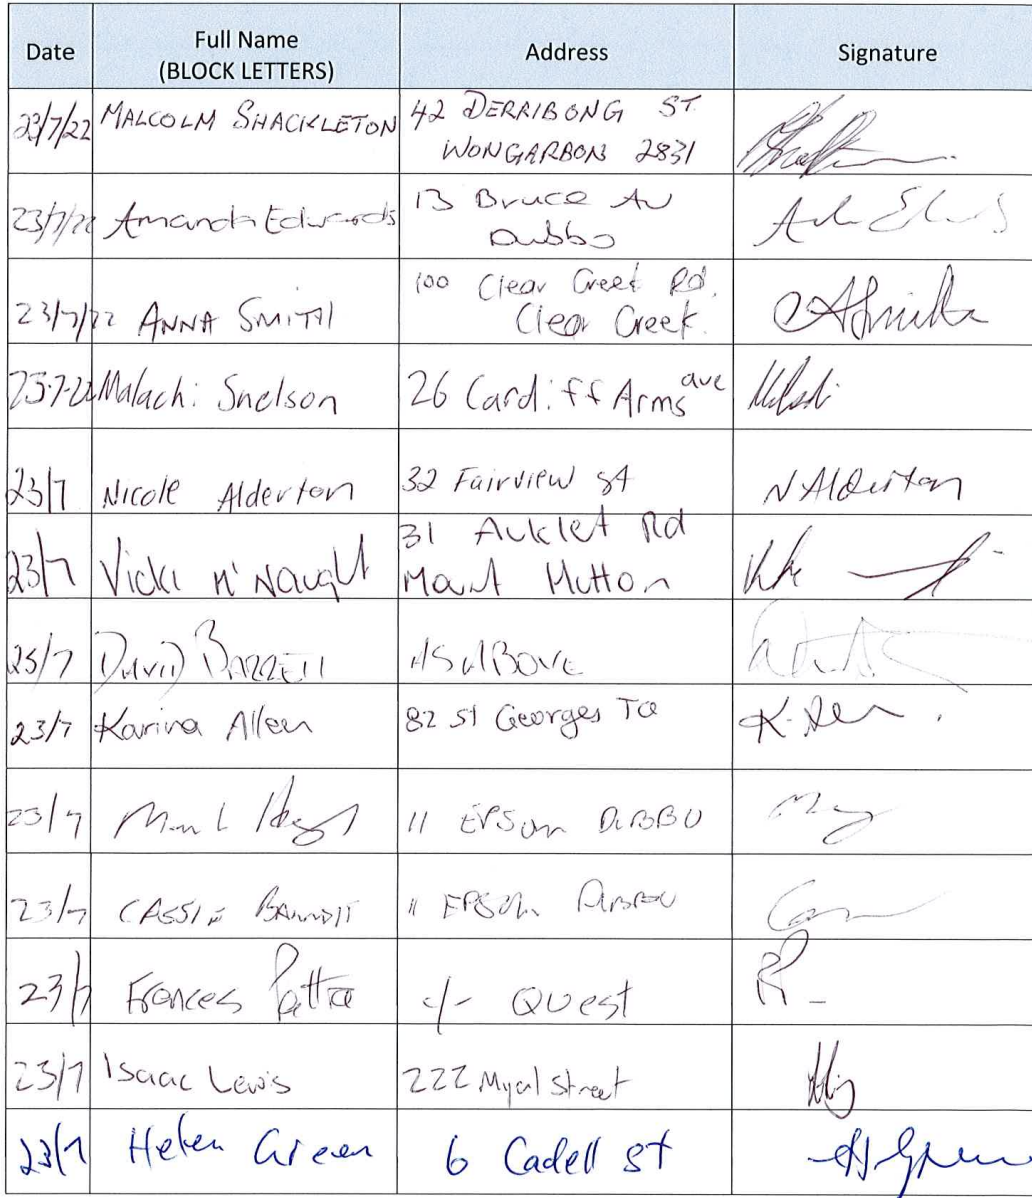 Date Full Name Address Signature
(BLOCK LETTERS)
23/7/22 MALCOLM SHACKLETON 42 DERRIBONG ST.
WONGARBON 2831
23/7/22 Amanda Edwards 13 Bruce Av
Dubbo
23/7/22 ANNA SMITH 100 Clear Creek Rd.
Clear Creek. ASmith
23-7-22 Malachi Snelson 26 Cardiff Arms ave
23/7 Nicole Alderton 32 Fairview st N Alderton
23/7 Vicki M'Naught 31 Auklet Rd
Mount Hutton
23/7 DAVID BARRETT AS ABOVE
23/7 Karina Allen 82 St Georges Tce K. Allen
23/7 11 EPSOM DUBBO
23/7 CASSIE 11 EPSOM DUBBO
23/7 Frances c/- Quest
23/7 Isaac Lewis 222 Myal Street
23/7 Helen Green 6 Cadell St H Green